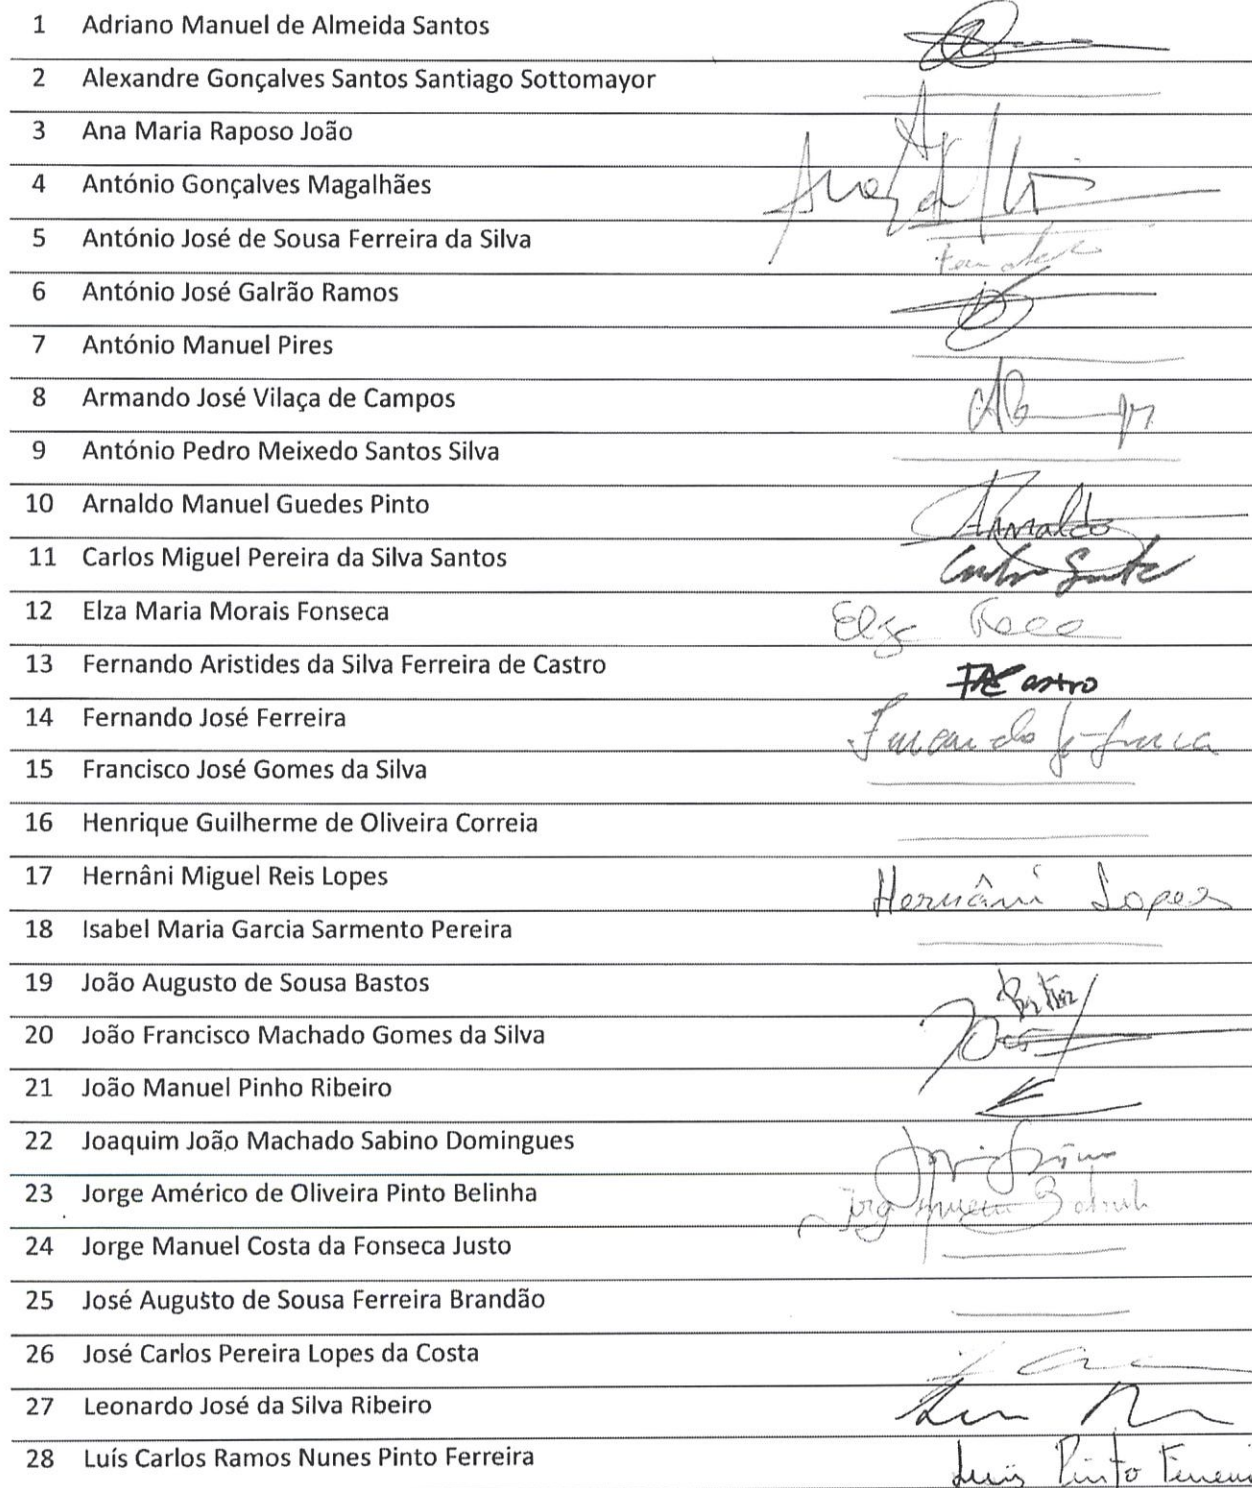 1 Adriano Manuel de Almeida Santos
2 Alexandre Gonçalves Santos Santiago Sottomayor
3 Ana Maria Raposo João
4 António Gonçalves Magalhães
5 António José de Sousa Ferreira da Silva
6 António José Galrão Ramos
7 António Manuel Pires
8 Armando José Vilaça de Campos
9 António Pedro Meixedo Santos Silva
10 Arnaldo Manuel Guedes Pinto Arnaldo
11 Carlos Miguel Pereira da Silva Santos
12 Elza Maria Morais Fonseca
13 Fernando Aristides da Silva Ferreira de Castro FACastro
14 Fernando José Ferreira
15 Francisco José Gomes da Silva
16 Henrique Guilherme de Oliveira Correia
17 Hernâni Miguel Reis Lopes Hernâni Lopes
18 Isabel Maria Garcia Sarmento Pereira
19 João Augusto de Sousa Bastos
20 João Francisco Machado Gomes da Silva
21 João Manuel Pinho Ribeiro
22 Joaquim João Machado Sabino Domingues
23 Jorge Américo de Oliveira Pinto Belinha
24 Jorge Manuel Costa da Fonseca Justo
25 José Augusto de Sousa Ferreira Brandão
26 José Carlos Pereira Lopes da Costa
27 Leonardo José da Silva Ribeiro
28 Luís Carlos Ramos Nunes Pinto Ferreira Luís Pinto